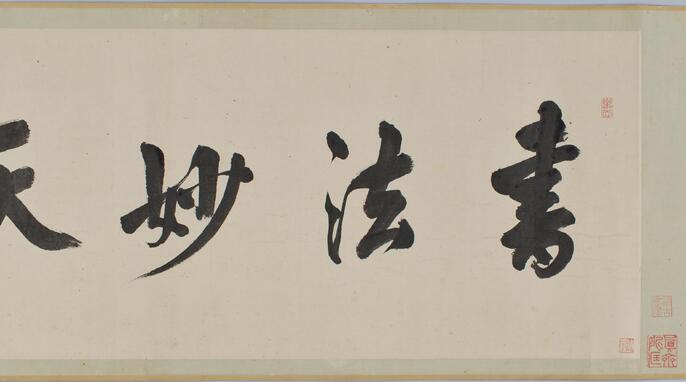 書法妙天